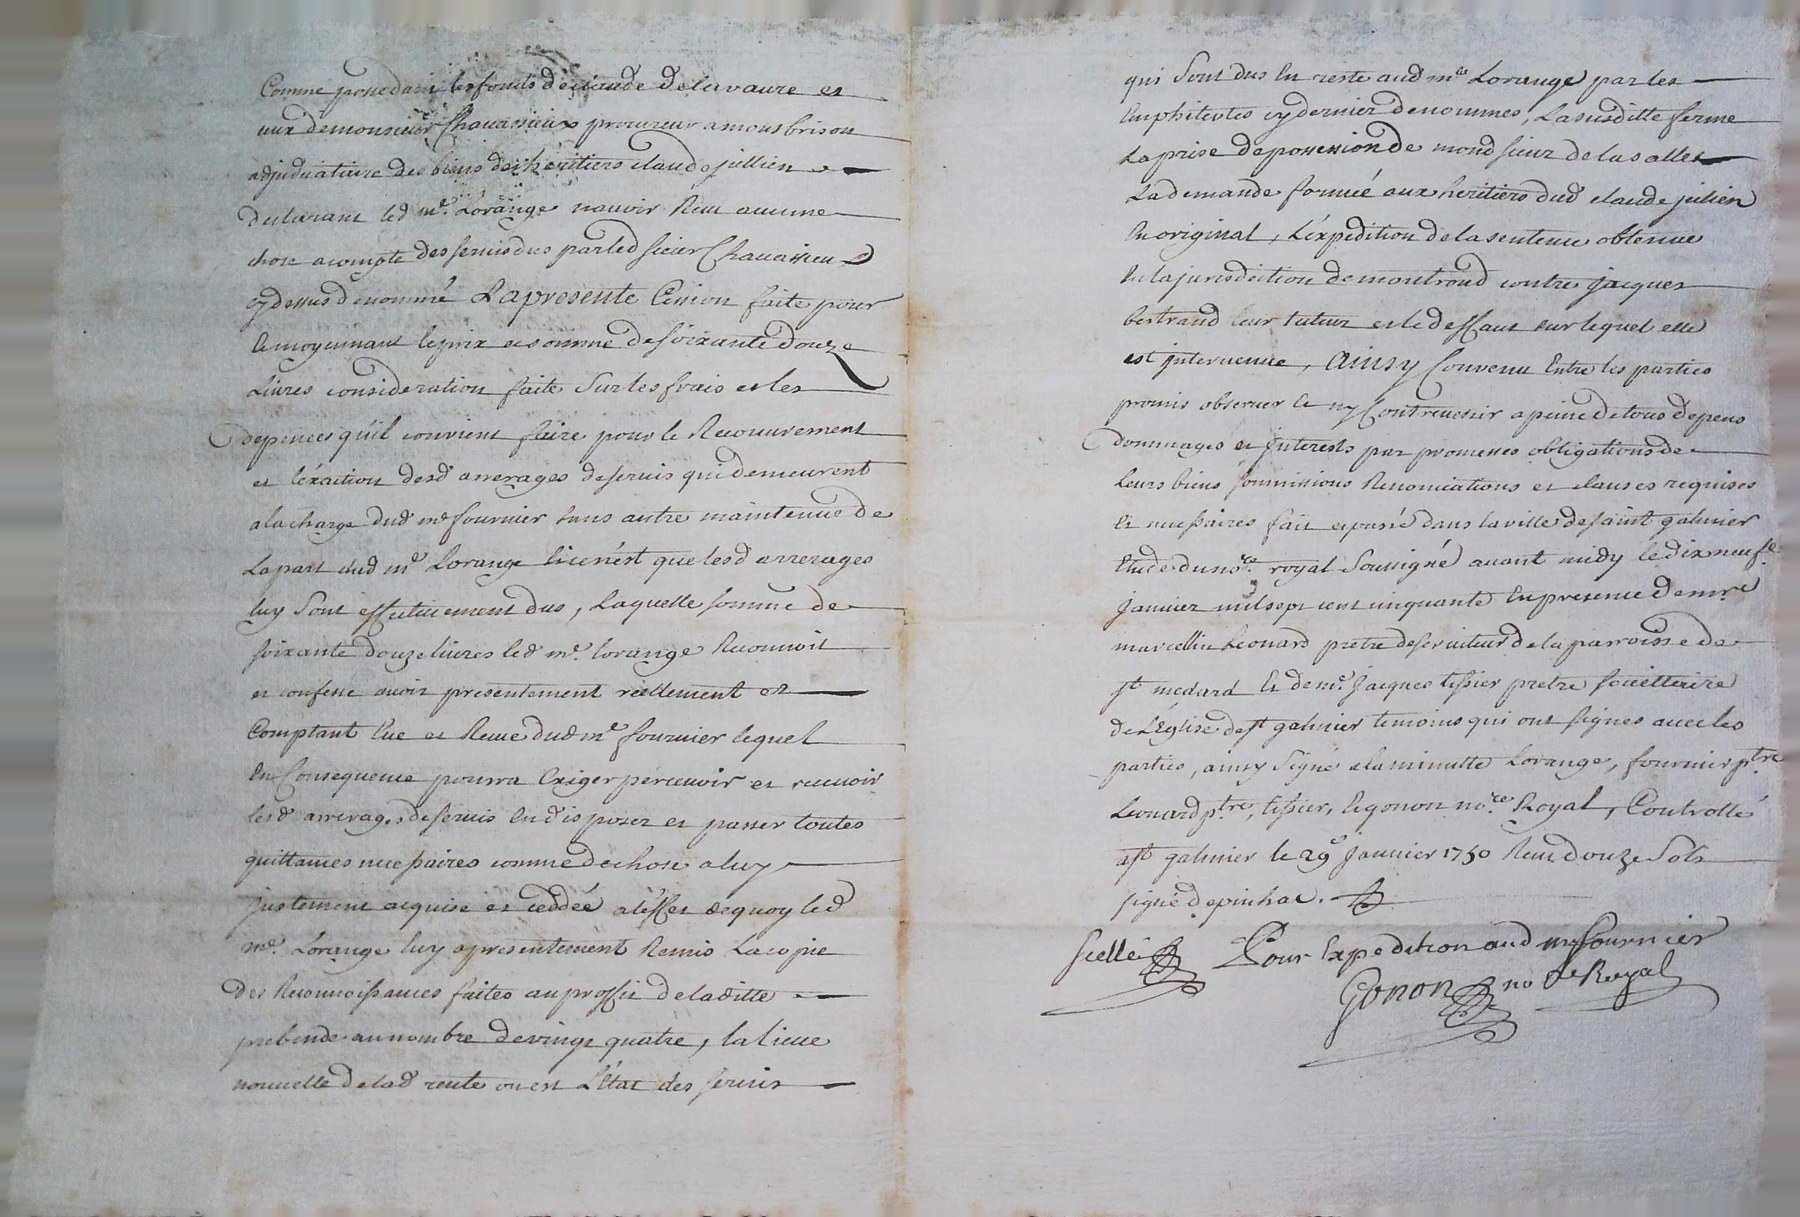 Comme possedant les fonds de claude delavaure et
eux de monsieur Chavassieux procureur a monbrison
adjudicataire des biens des heritiers claude jullien
declarant led me. Lorange navoir Receu aucune
chose acompte des servis dus par led sieur Chavassieux
cy dessus denommé La presente Cession faite pour
Et moyennant le prix et somme de soixante douze
Livres consideration faite sur les frais et les
depences qu'il convient faire pour le Recouvrement
et l'éxaction desd arrerages de servis qui demeurent
a la charge dud me fournier sans autre maintenue de
La part dud me Lorange si ce n'est que lesd arrerages
luy sont effectivement dus, Laquelle somme de
soixante douze livres led me. lorange Reconnoit
et confesse avoir presentement reellement et
Comptant Eue et Receue dud me fournier lequel
En Consequence pourra Exiger percevoir et recevoir
lesd arrerages de servis En disposer et passer toutes
quittances necessaires comme de chose a luy
justement acquise et ceddée a l'effet de quoy led
me. Lorange luy a presentement Remis La copie
Des Reconnoissances faites au proffit de laditte
prebende au nombre de vingt quatre, la lieve
nouvelle de lad rente ou est L'Etat des servis
qui sont dus En reste aud me Lorange par les
Emphiteotes cy dernier denommes, La susditte ferme
La prise de possession de mond sieur de la salle
La demande formée aux heritiers dud claude julien
En original, L'expedition de la sentence obtenue
En la jurisdiction de montrond contre jacques
bertrand leur tuteur et le deffaut sur lequel elle
est intervenue, Ainsy Convenu Entre les parties
promis observer Et ny Contrevenir a peine de tous depens
dommages et interests par promesses obligations de
Leurs biens soumissions Renonciations et clauses requises
Et necessaires fait et passé dans la ville de saint galmier
Etude du nore. royal soussigné avant midy le dix neufe
janvier mil sept cent cinquante En presence de mre
marcellin Leonard pretre deserviteur de la parroisse de
st medard Et de me. jacques tissier pretre societtaire
de L'Eglise de st galmier temoins qui ont signes avec les
parties, ainsy signe a la minutte Lorange, fournier ptre
Leonard ptre, tissier, Et gonon nore Royal, Controllé
a st galmier le 29e janvier 1750 Receu douze sols
signé depinhac.
scellé Pour Expedition aud me fournier
Gonon nore Royal